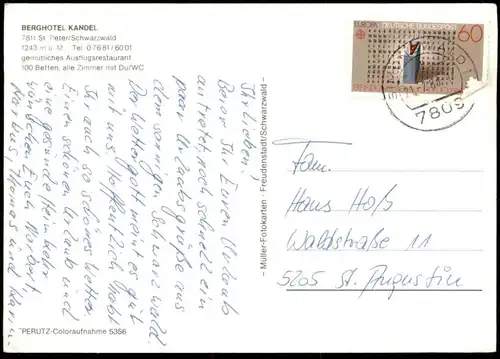 BERGHOTEL KANDEL
7811 St. Peter/Schwarzwald
1243 m ü. M. Tel. 0 76 81 / 60 01
gemütliches Ausflugsrestaurant
100 Betten, alle Zimmer mit Du/WC
Ihr Lieben!
Bevor Ihr Euren Urlaub
antretet, noch schnell ein
paar Urlaubsgrüße aus
dem sonnigen Schwarzwald.
Der Wettergott meint es gut
mit uns. Hoffentlich habt
Ihr auch so schönes Wetter.
Einen schönen Urlaub und
eine gesunde Heimkehr
wünschen Euch Norbert,
Markus, Thomas und Karin.
PERUTZ-Coloraufnahme 5356
– Müller-Fotokarten · Freudenstadt/Schwarzwald –
EUROPA DEUTSCHE BUNDESPOST
60
780
Fam.
Hans Hoß
Waldstraße 11
5205 St. Augustin